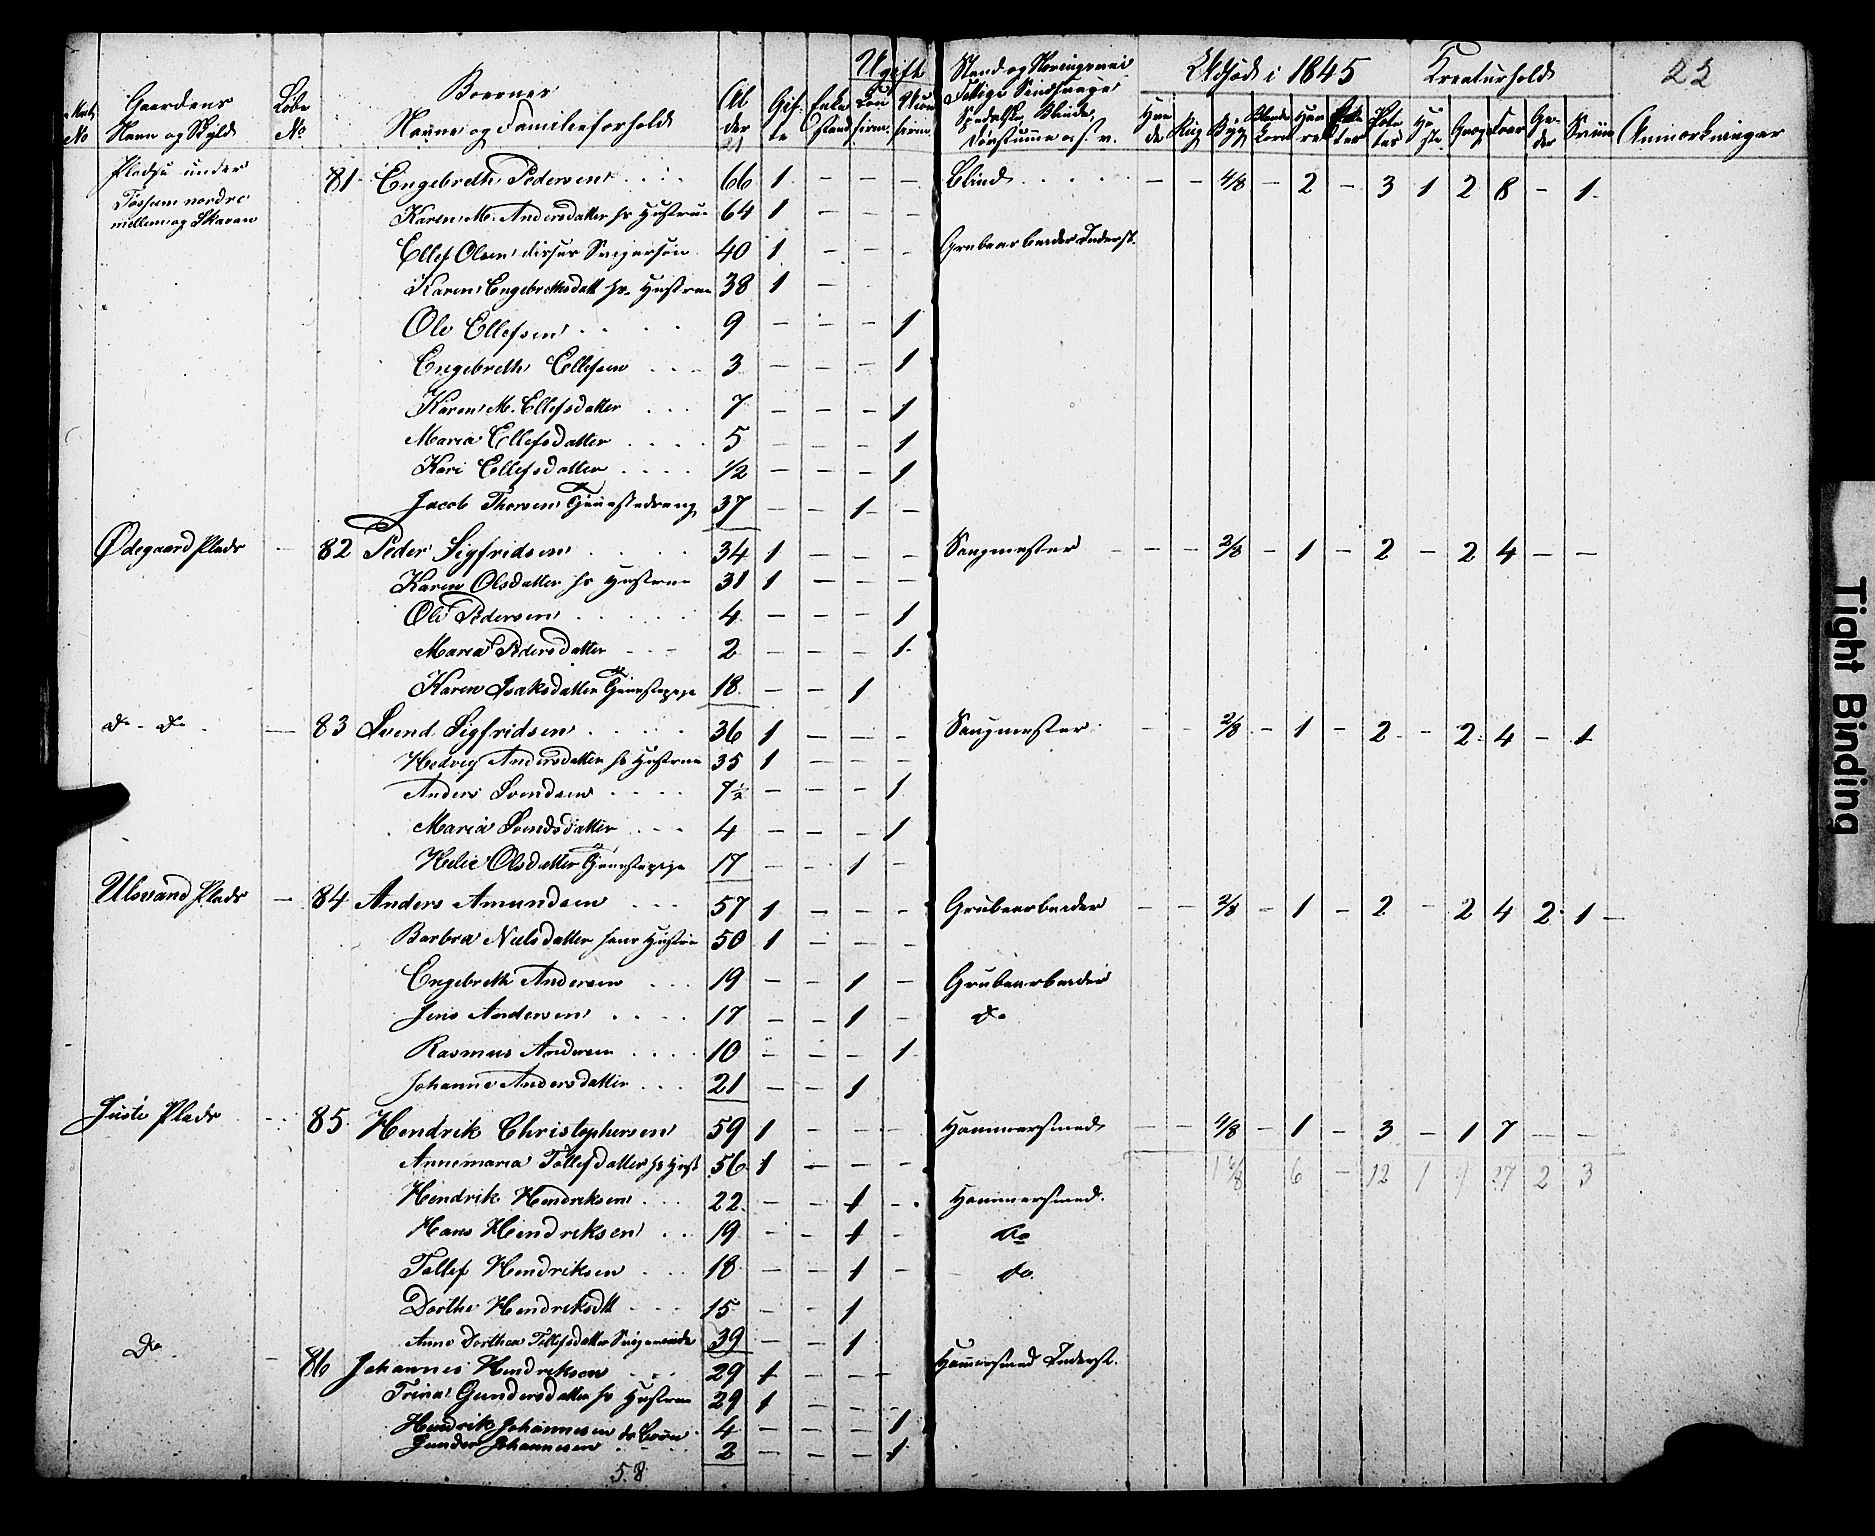 22
Matr. No | Gaardens Navn og Skyld | Løbe No | Beboernes Navne og Familieforhold | Alder | Gifte | Enkestand | Ugift: Confirm. | Uconfirm. | Stand og Næringsvei Fattige Sindssvage Spedalske Blinde Døvstumme o.s.v. | Udsæd i 1845: Hvede | Rug | Byg | Blandekorn | Havre | Erter | Potetes | Kreaturhold: Heste | Qvæg | Faar | Geder | Sviin | Anmærkninger
Pladse under | 81 | Engebreth Pedersen | 66 | 1 | - | - | - | Blind | - | - | 4/8 | - | 2 | - | 3 | 1 | 2 | 8 | - | 1
Fossum nordre
mellem og Skaren | Karen M. Andersdatter hs Hustrue | 64 | 1 | - | - | -
Ellef Olsen disses Svigersøn | 40 | 1 | - | - | Grubearbeider Inderst.
Karen Engebrethsdatt hs. Hustrue | 38 | 1 | -
Ole Ellefsen | 9 | - | - | - | 1
Engebreth Ellefsen | 3 | - | - | - | 1
Karen M. Ellefsdatter | 7 | - | - | - | 1
Maria Ellefsdatter | 5 | - | - | - | 1
Kari Ellefsdatter | 1/2 | - | - | - | 1
Jacob Thorsen Tjenestedreng | 37 | - | - | 1 | -
Ødegaard Plads | - | 82 | Peder Sigfridsen | 34 | 1 | - | - | - | Saugmester | - | - | - | 3/8 | - | 1 | - | 2 | - | 2 | 4 | - | -
Karen Olsdatter hs Hustrue | 31 | 1 | - | - | -
Ole Pedersen | 4 | - | - | - | 1
Maria Pedersdatter | 2 | - | - | - | 1
Karen Isaksdatter Tjenestepige | 18 | - | - | 1
do - do | - | 83 | Svend Sigfridsen | 36 | 1 | - | - | - | Saugmester | - | - | 2/8 | - | 1 | - | 2 | - | 2 | 4 | - | 1
Hedvig Andersdatter hs Hustrue | 35 | 1 | - | - | -
Anders Svendsen | 7 1/2 | - | - | - | 1
Maria Svendsdatter | 4 | - | - | - | 1
Helie Olsdatter Tjenestepige | 17 | - | - | 1 | -
Ulsvand Plads | - | 84 | Anders Amundsen | 57 | 1 | - | - | - | Grubearbeider | - | - | 3/8 | - | 1 | - | 2 | - | 2 | 4 | 2 | 1
Barbra Nielsdatter hans Hustrue | 50 | 1 | - | - | -
Engebreth Andersen | 19 | - | - | 1 | - | Grubearbeider
Jens Andersen | 17 | - | - | 1 | - | do
Rasmus Andersen | 10 | - | - | - | 1
Johanne Andersdatter | 21 | - | - | 1
Juste Plads | - | 85 | Hendrik Christophersen | 59 | 1 | - | - | - | Hammersmed | - | - | 4/8 | - | 1 | - | 3 | - | 1 | 7 | - | -
Annemaria Tollefsdatter hs Hust | 56 | 1 | - | - | - | 6 | - | 12 | 1 | 9 | 27 | 2 | 3
Hendrik Hendriksen | 22 | - | - | 1 | - | Hammersmed.
Hans Hendriksen | 19 | - | - | 1 | - | do
Tollef Hendriksen | 18 | - | - | 1 | - | do.
Dorthe Hendriksdtt | 15 | - | - | 1
Anne Dorthea Tollefsdatter Svigerinde | 39 | - | - | 1
do | - | 86 | Johannes Hendriksen | 29 | 1 | - | - | - | Hammersmed Inderst.
Trine Gundersdatter hs Hustrue | 29 | 1 | - | - | -
Hendrik Johannesen ds Børn | 4 | - | - | - | 1
Gunder Johannesen | 2 | - | - | - | 1
58
Tight Binding